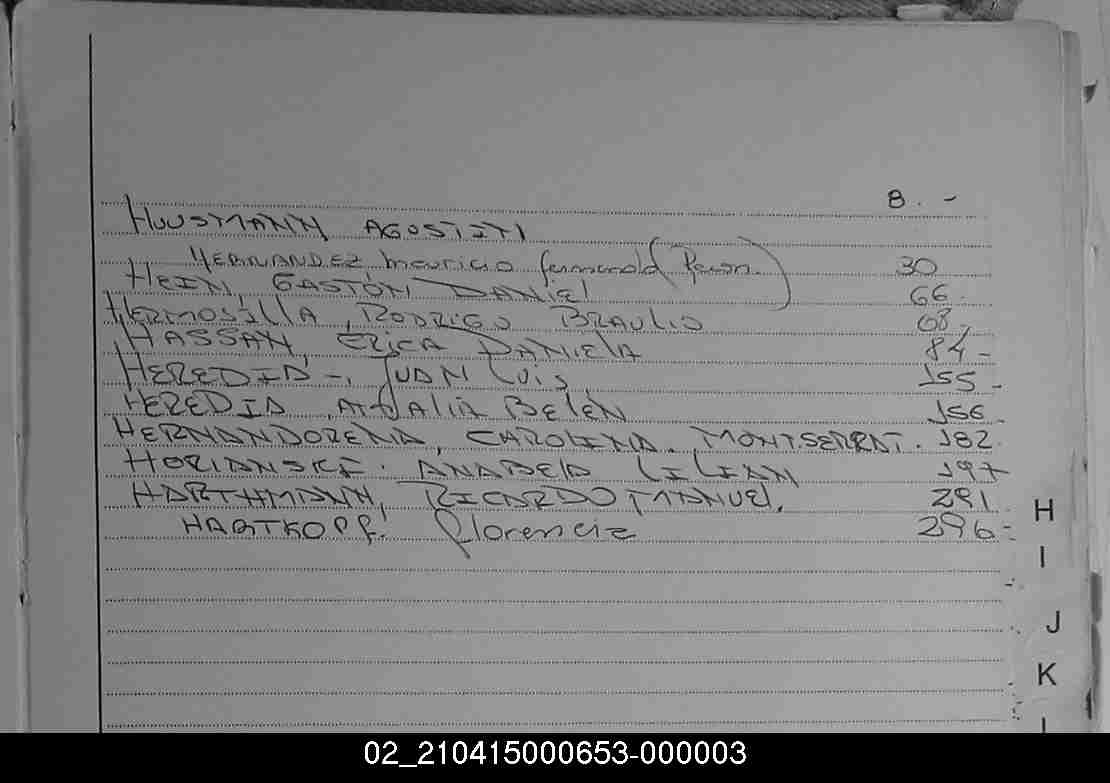 8. -
HUUSMANN AGOSTITI
HERNANDEZ Mauricio fernando (Peron.)  30
HEIN, GASTON DANIEL  66.
HERMOSILLA, RODRIGO BRAULIO  68.
HASSAN, ERICA DANIELA  84 -
HEREDIA -, JUAN LUIS  155 -
HEREDIA, ATALIA BELEN  156
HERNANDORENA, CAROLINA. MONTSERRAT. 182.
HORIANSKI. ANABELA LILIAN  197
HARTHMANN, RICARDO MANUEL.  291.
HARTKOPF. florencia  296 -
H
I
J
K